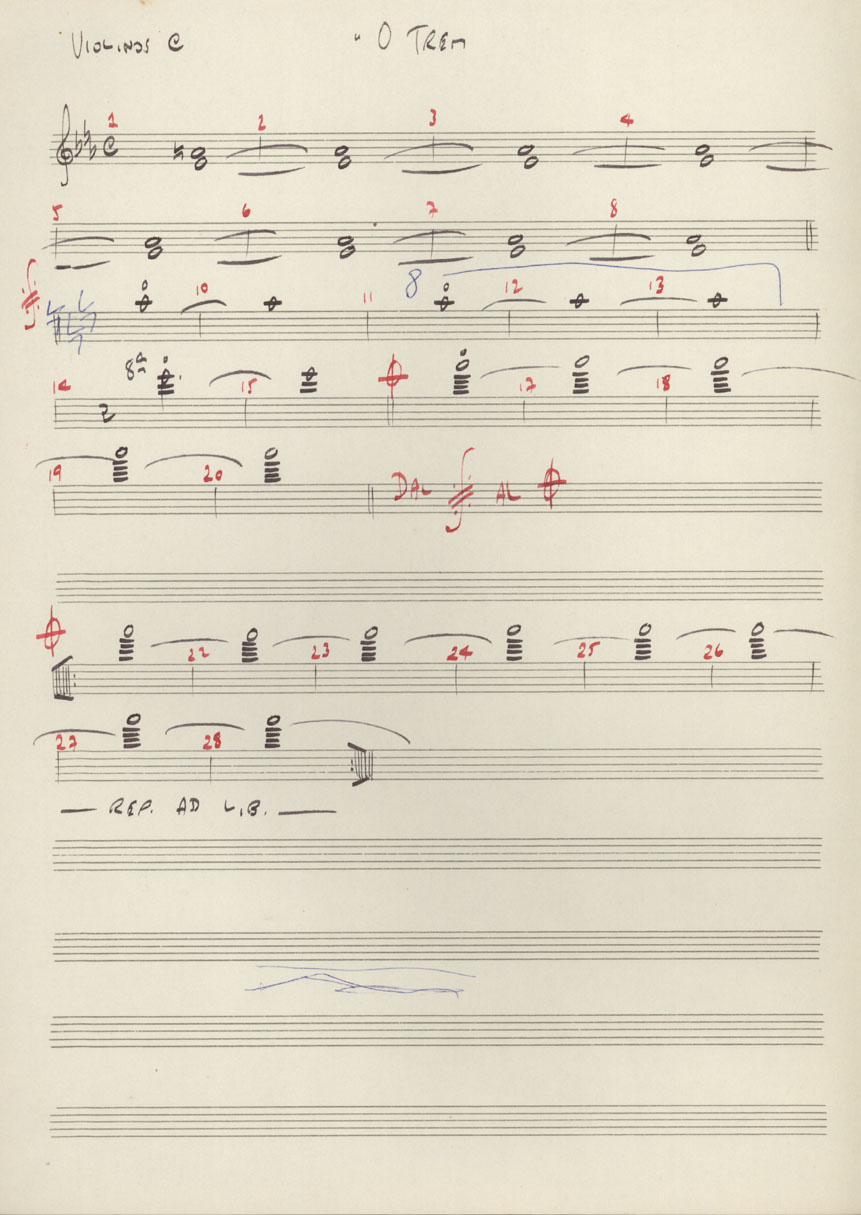 VIOLINOS C " O TREM
1 2 3 4
5 6 7 8
8
10 11 12 13
8ª
14 2 15 17 18
19 20 DAL AL
22 23 24 25 26
27 28
— REP. AD LIB. —